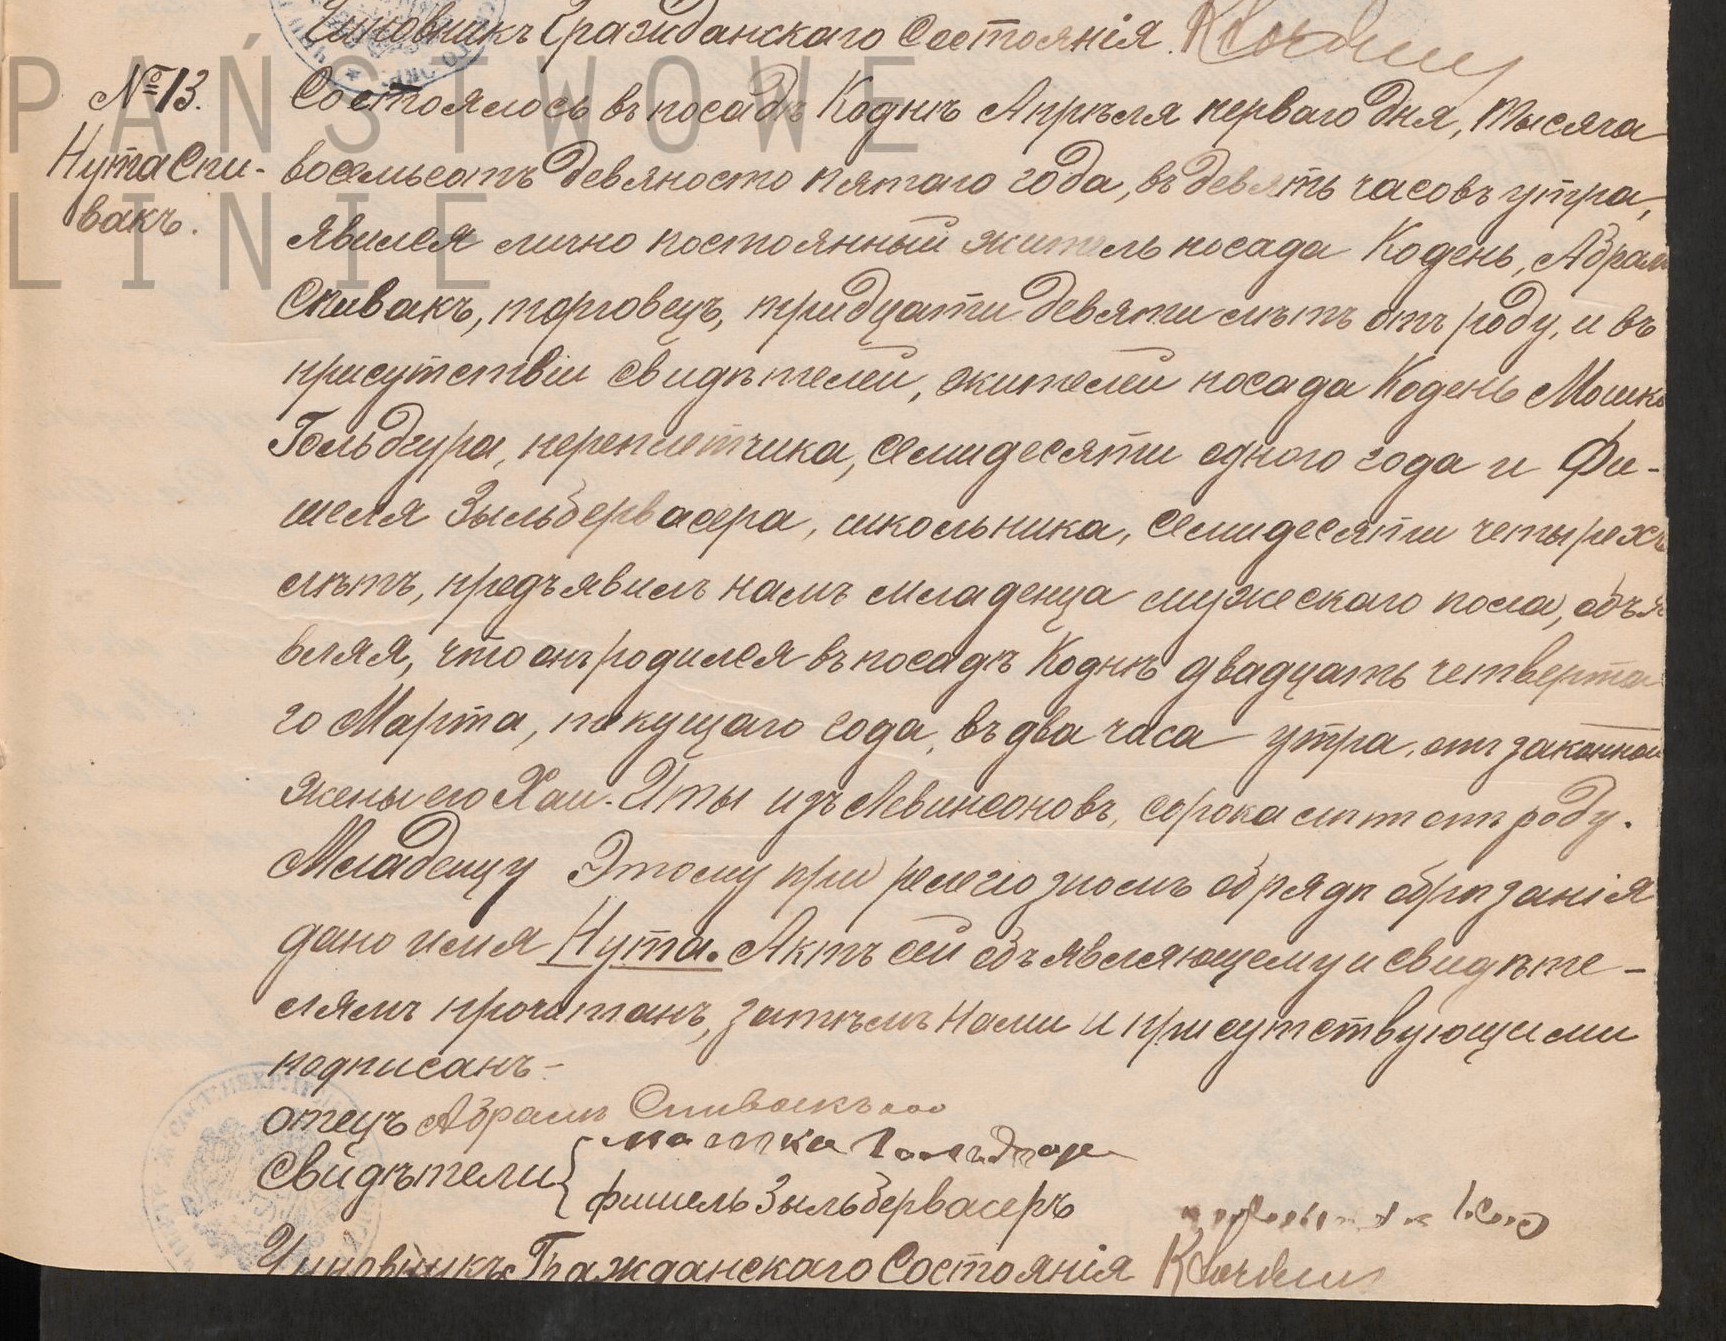 Чиновникъ Гражданскаго Состоянія
№ 13. Состоялось въ посадѣ Коднѣ Апрѣля перваго дня, тысяча
Нута Спи- восемьсотъ девяносто пятаго года, въ девять часовъ утра,
вакъ. явился лично постоянный житель посада Кодень, Абрам
Спивакъ, торговецъ, тридцати девяти лѣтъ отъ роду, и въ
присутствіи свидѣтелей, жителей посада Кодень Мошка
Гольдгура, переплетчика, семидесяти одного года и Фи-
шеля Зыльбервасера, школьника, семидесяти четырехъ
лѣтъ, предъявилъ намъ младенца мужескаго пола, объя
вляя, что онъ родился въ посадѣ Коднѣ двадцать четверта
го Марта, текущаго года, въ два часа утра, отъ законной
жены его Хаи-Иты изъ Левинсоновъ, сорока лѣтъ отъ роду.
Младенцу Этому при религіозномъ обрядѣ обрѣзанія
дано имя Нута. Актъ сей объявляющему и свидѣте-
лямъ прочитанъ, затѣмъ Нами и присутствующими
подписанъ-
отецъ Абрамъ Спивакъ
Свидѣтели { мошка
фишель Зыльбервасеръ
Чиновникъ Гражданскаго Состоянія
PAŃSTWOWE
LINIE